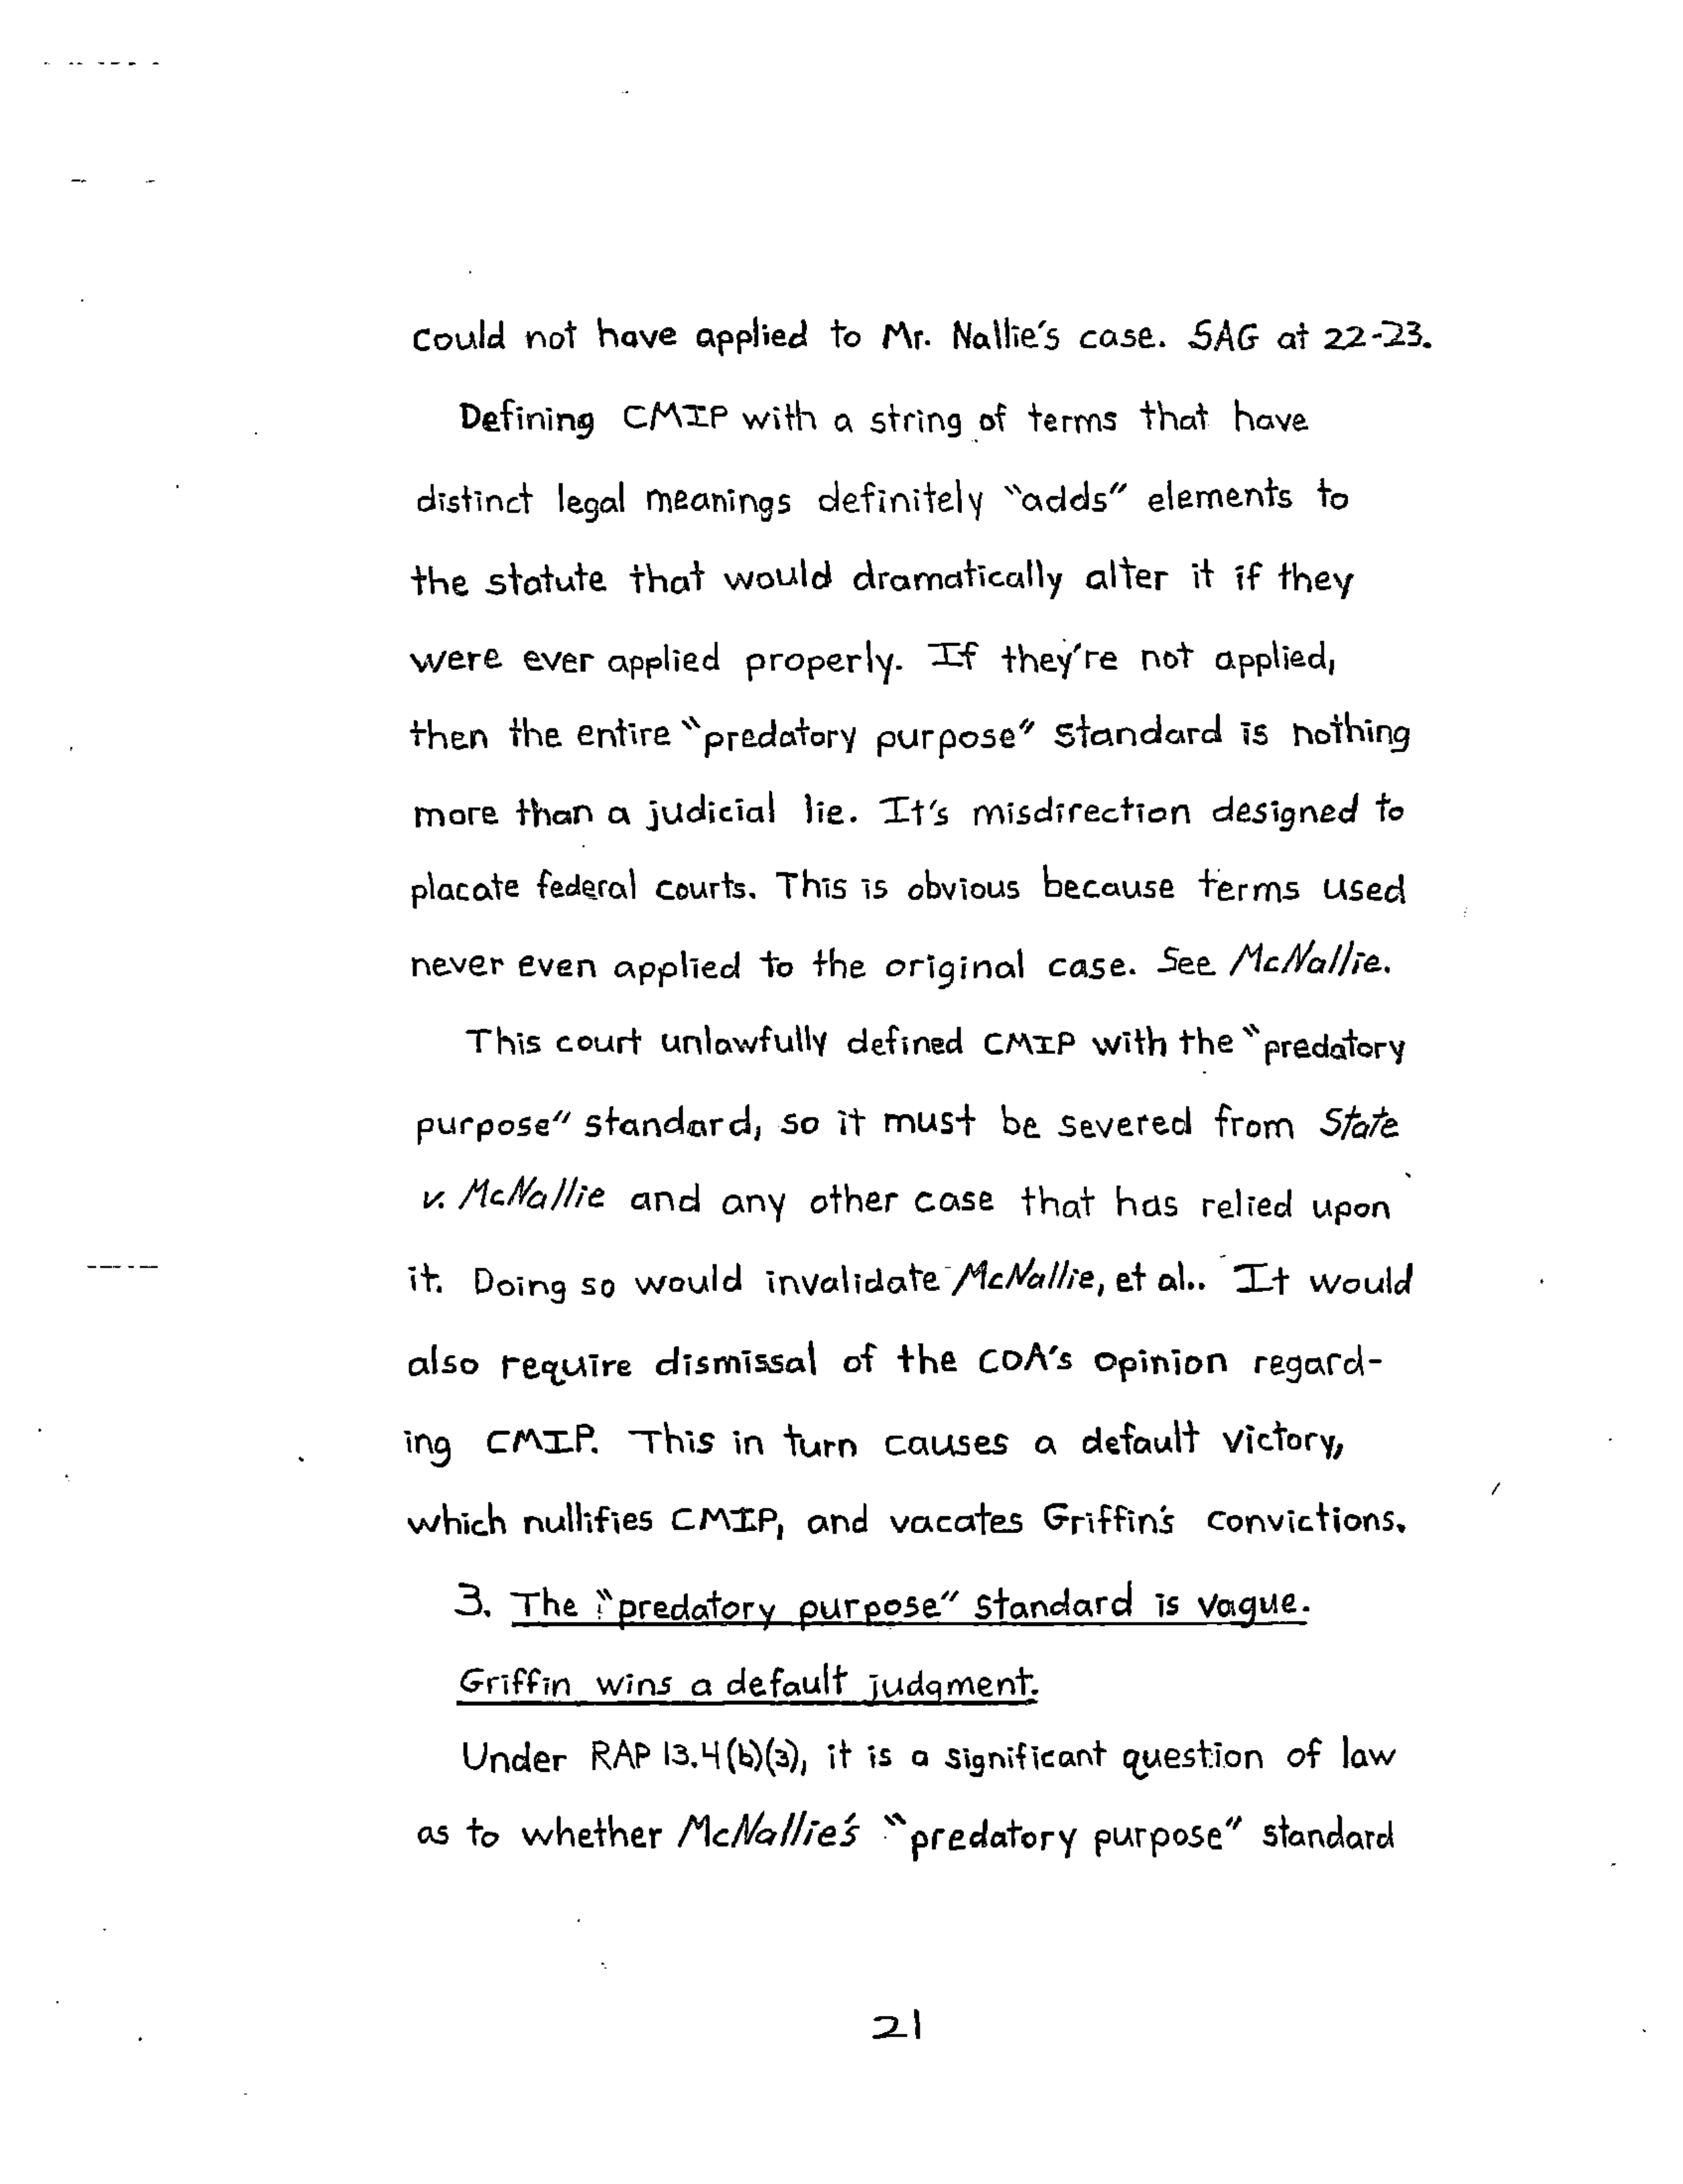 could not have applied to Mr. Nallie's case. SAG at 22-23.
Defining CMIP with a string of terms that have
distinct legal meanings definitely "adds" elements to
the statute that would dramatically alter it if they
were ever applied properly. If they're not applied,
then the entire "predatory purpose" standard is nothing
more than a judicial lie. It's misdirection designed to
placate federal courts. This is obvious because terms used
never even applied to the original case. See McNallie.
This court unlawfully defined CMIP with the "predatory
purpose" standard, so it must be severed from State
v. McNallie and any other case that has relied upon
it. Doing so would invalidate McNallie, et al.. It would
also require dismissal of the COA's opinion regard-
ing CMIP. This in turn causes a default victory,
which nullifies CMIP, and vacates Griffin's convictions.
3. The "predatory purpose" standard is vague.
Griffin wins a default judgment.
Under RAP 13.4(b)(3), it is a significant question of law
as to whether McNallie's "predatory purpose" standard
21